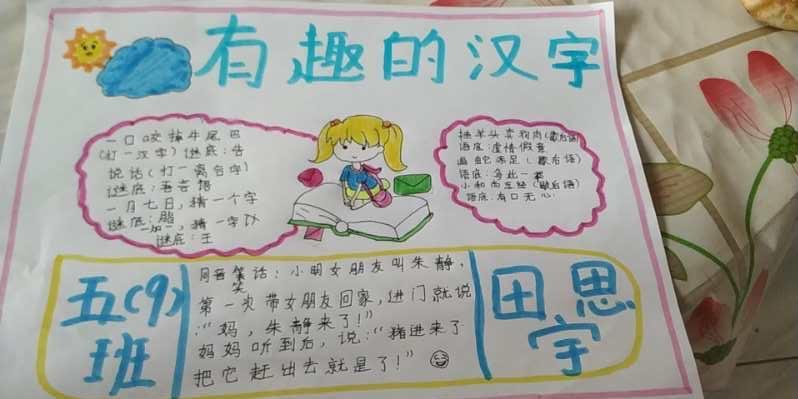 有趣的汉字
一口咬掉牛尾巴
(打一汉字)谜底:告
说话(打一离合字)
谜底:吾言语
一月七日,猜一个字
谜底:脂
一加一,猜一字
谜底:王
挂羊头卖狗肉(歇后语)
语底:虚情假意
画蛇添足(歇后语)
语底:多此一举
小和尚念经(歇后语)
语底:有口无心
五(9)
班
同音笑话:小明女朋友叫朱静,
笑
第一次带女朋友回家,进门就说
:“妈,朱静来了!”
妈妈听到后,说:“猪进来了
把它赶出去就是了!”
田思
宇